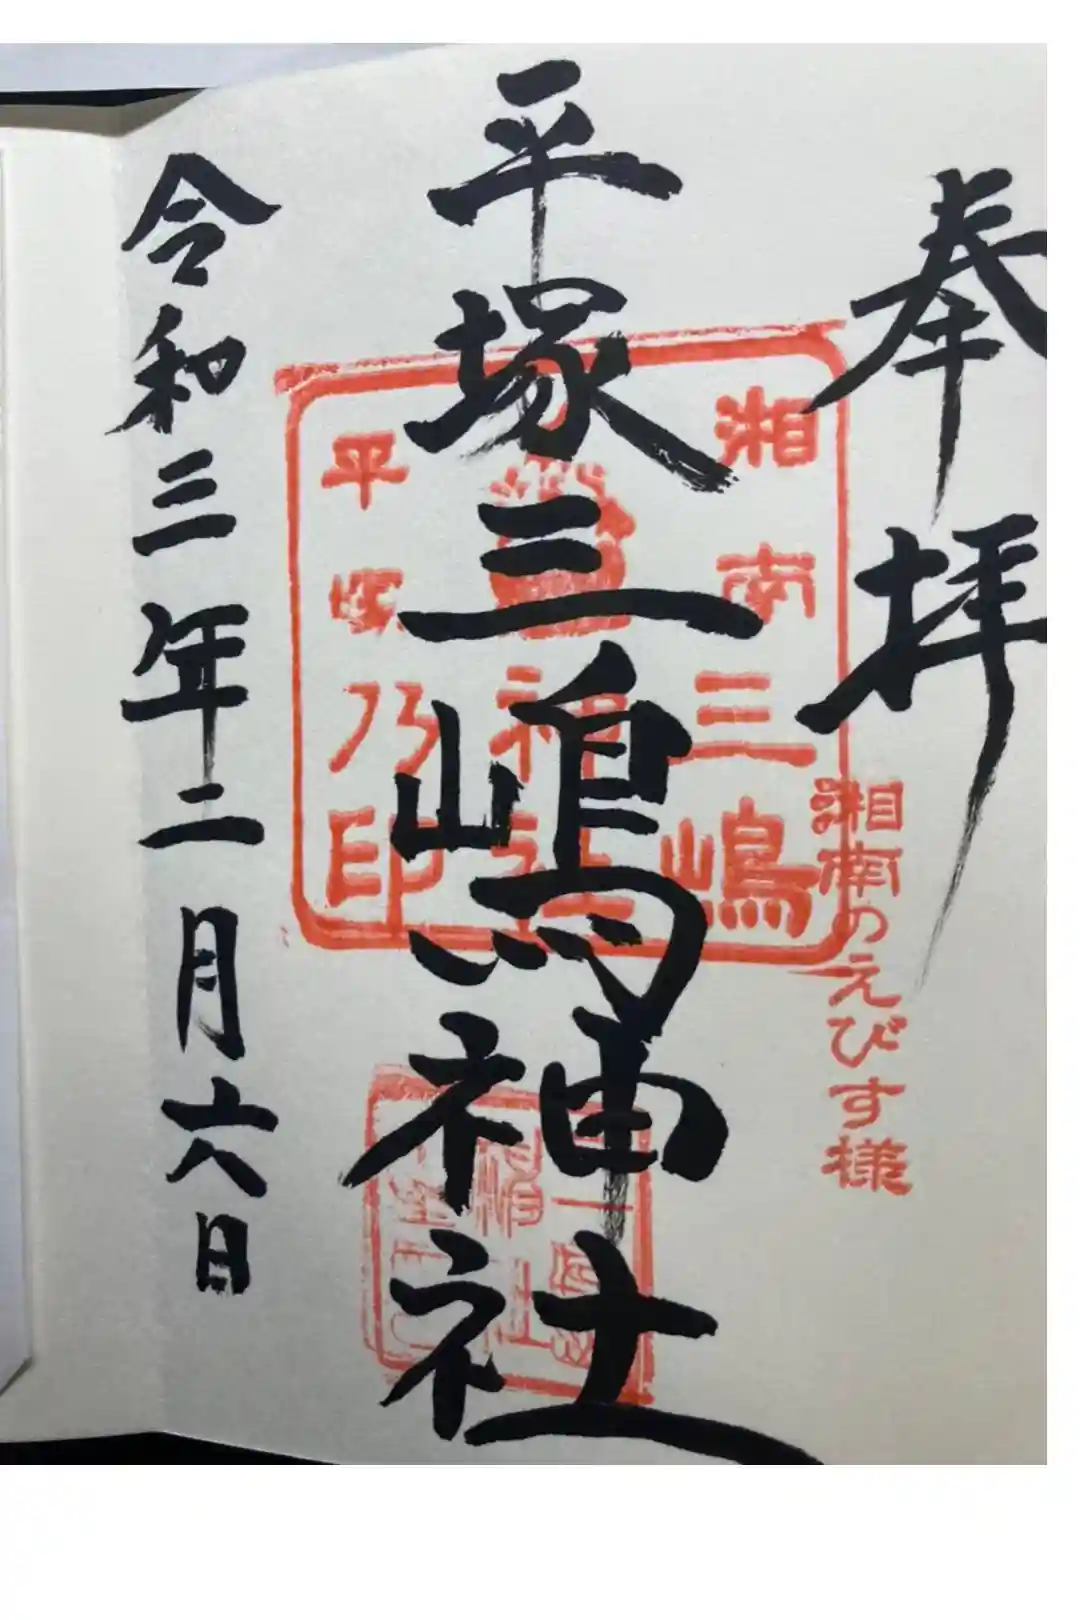 奉拝
湘南のえびす様
湘南三嶋
神社
平塚乃印
平塚三嶋神社
令和三年二月六日